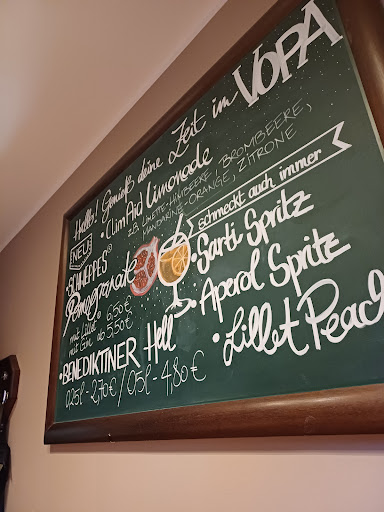 Hallo! Genieß deine Zeit im VOPA
NEU
• ClimAid Limonade
z.B. LIMETTE-HIMBEERE, BROMBEERE,
MANDARINE-ORANGE, ZITRONE
• SCHWEPPES®
Pomegranate
mit Lillet 6,50€
mit Gin ab 5,50€
• BENEDIKTINER Hell
0,25l - 2,70€ / 0,5l - 4,80€
schmeckt auch immer
• Sarti Spritz
• Aperol Spritz
• Lillet Peach